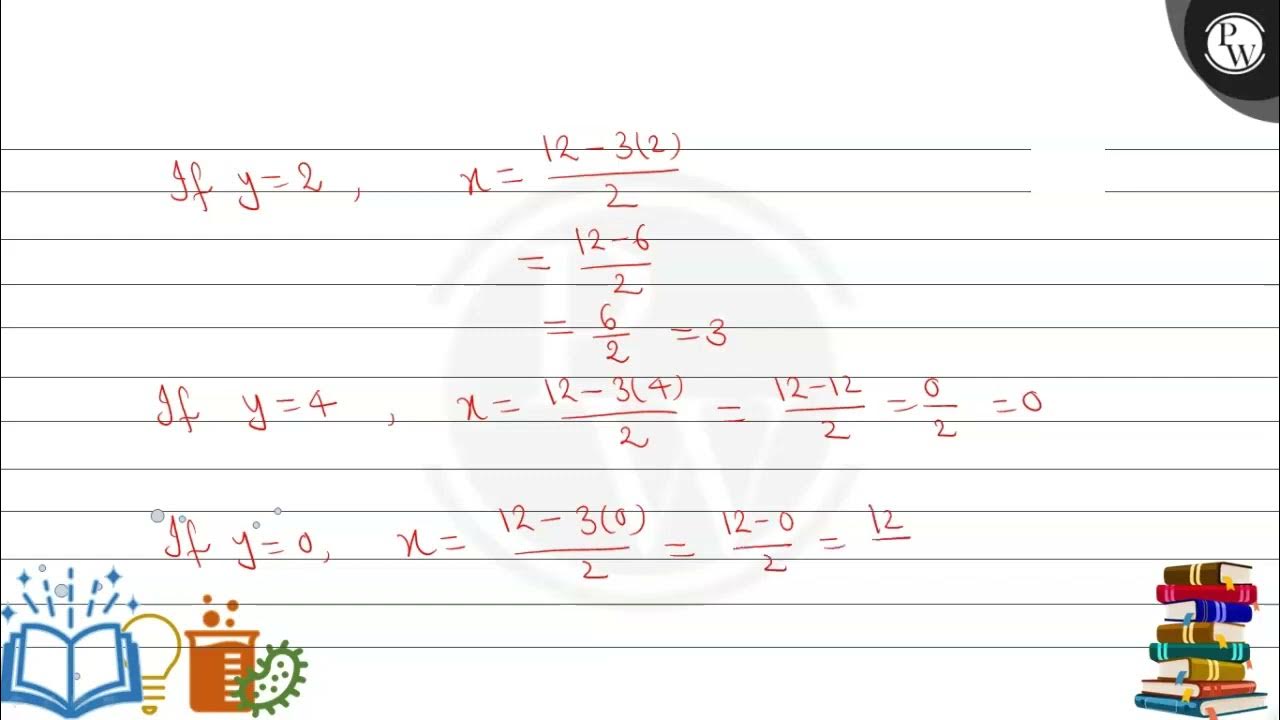 PW
If y=2, x = \frac{12-3(2)}{2}
= \frac{12-6}{2}
= \frac{6}{2} = 3
If y=4, x = \frac{12-3(4)}{2} = \frac{12-12}{2} = \frac{0}{2} = 0
If y=0, x = \frac{12-3(0)}{2} = \frac{12-0}{2} = \frac{12}{}